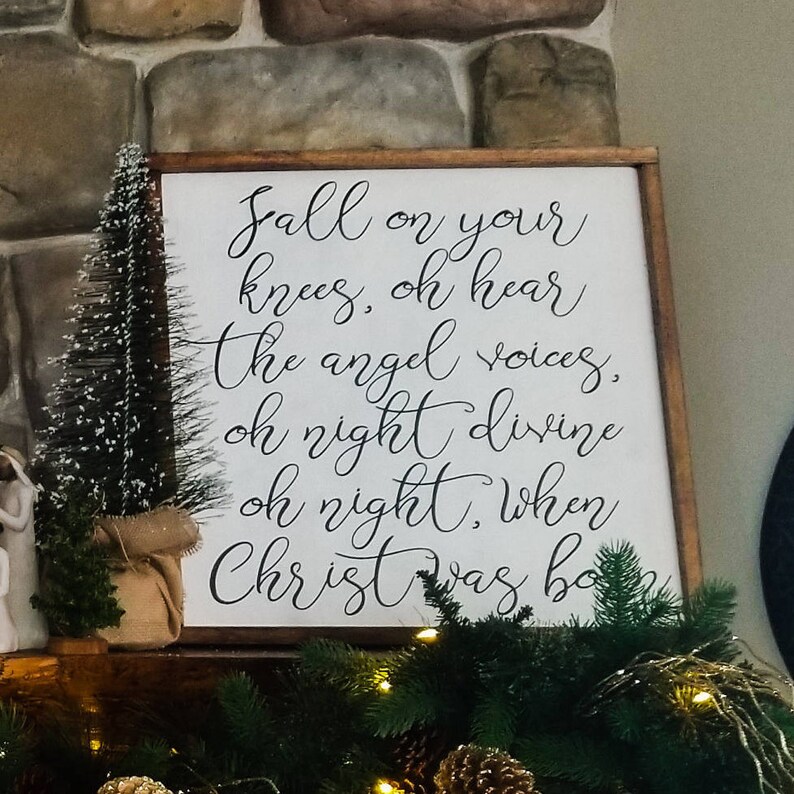 Fall on your
knees, oh hear
the angel voices,
oh night divine
oh night, When
Christ was born